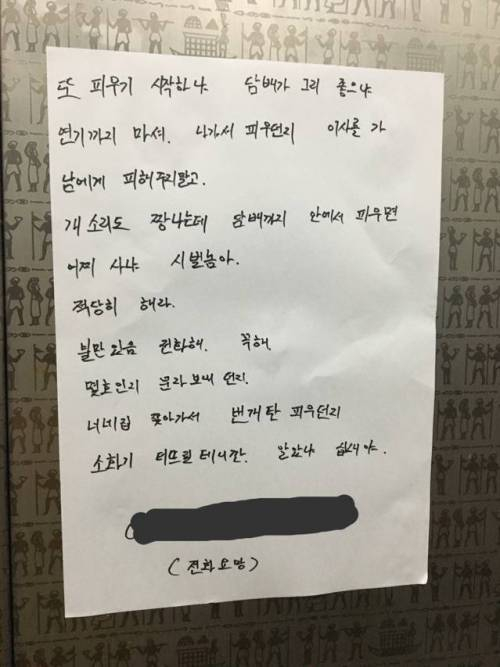 또 피우기 시작하냐 담배가 그리 좋으냐
연기까지 마셔. 나가서 피우던지 이사를 가
남에게 피해주지말고.
개 소리도 짱나는데 담배까지 안에서 피우면
어찌 사냐 시벌놈아.
적당히 해라.
불만 있음 전화해. 꼭해
몇호인지 문자 보내 던지.
너네집 찾아가서 번개탄 피우던지
소화기 터뜨릴테니깐. 알았냐
(전화요망)